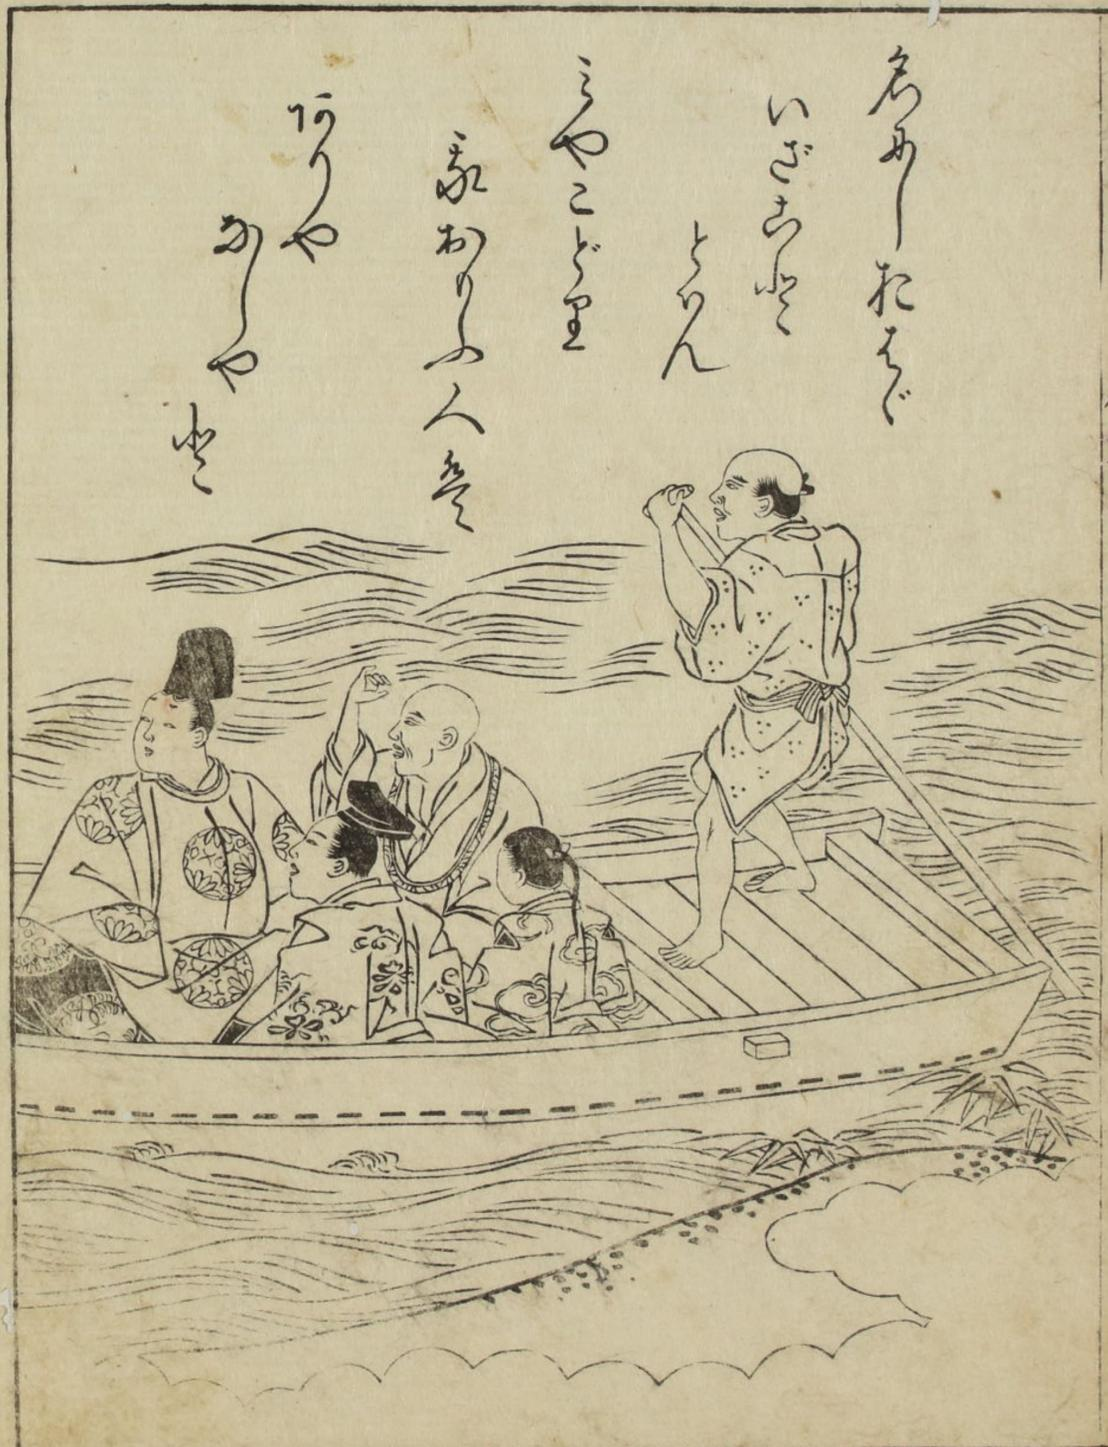 名にしおはゞ
いざこと
とはん
みやこどり
我おもふ人は
ありや
なしや
と